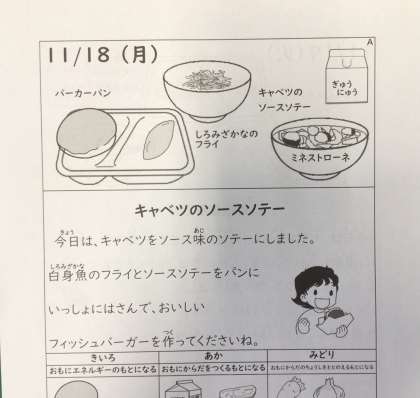 A
11/18（月）
バーカーパン
キャベツの
ソースソテー
ぎゅう
にゅう
しろみざかなの
フライ
ミネストローネ
キャベツのソースソテー
きょう あじ
今日は、キャベツをソース味のソテーにしました。
しろみざかな
白身魚のフライとソースソテーをパンに
いっしょにはさんで、おいしい
つく
フィッシュバーガーを作ってくださいね。
きいろ あか みどり
おもにエネルギーのもとになる おもにからだをつくるもとになる おもにからだのちょうしをととのえるもとになる